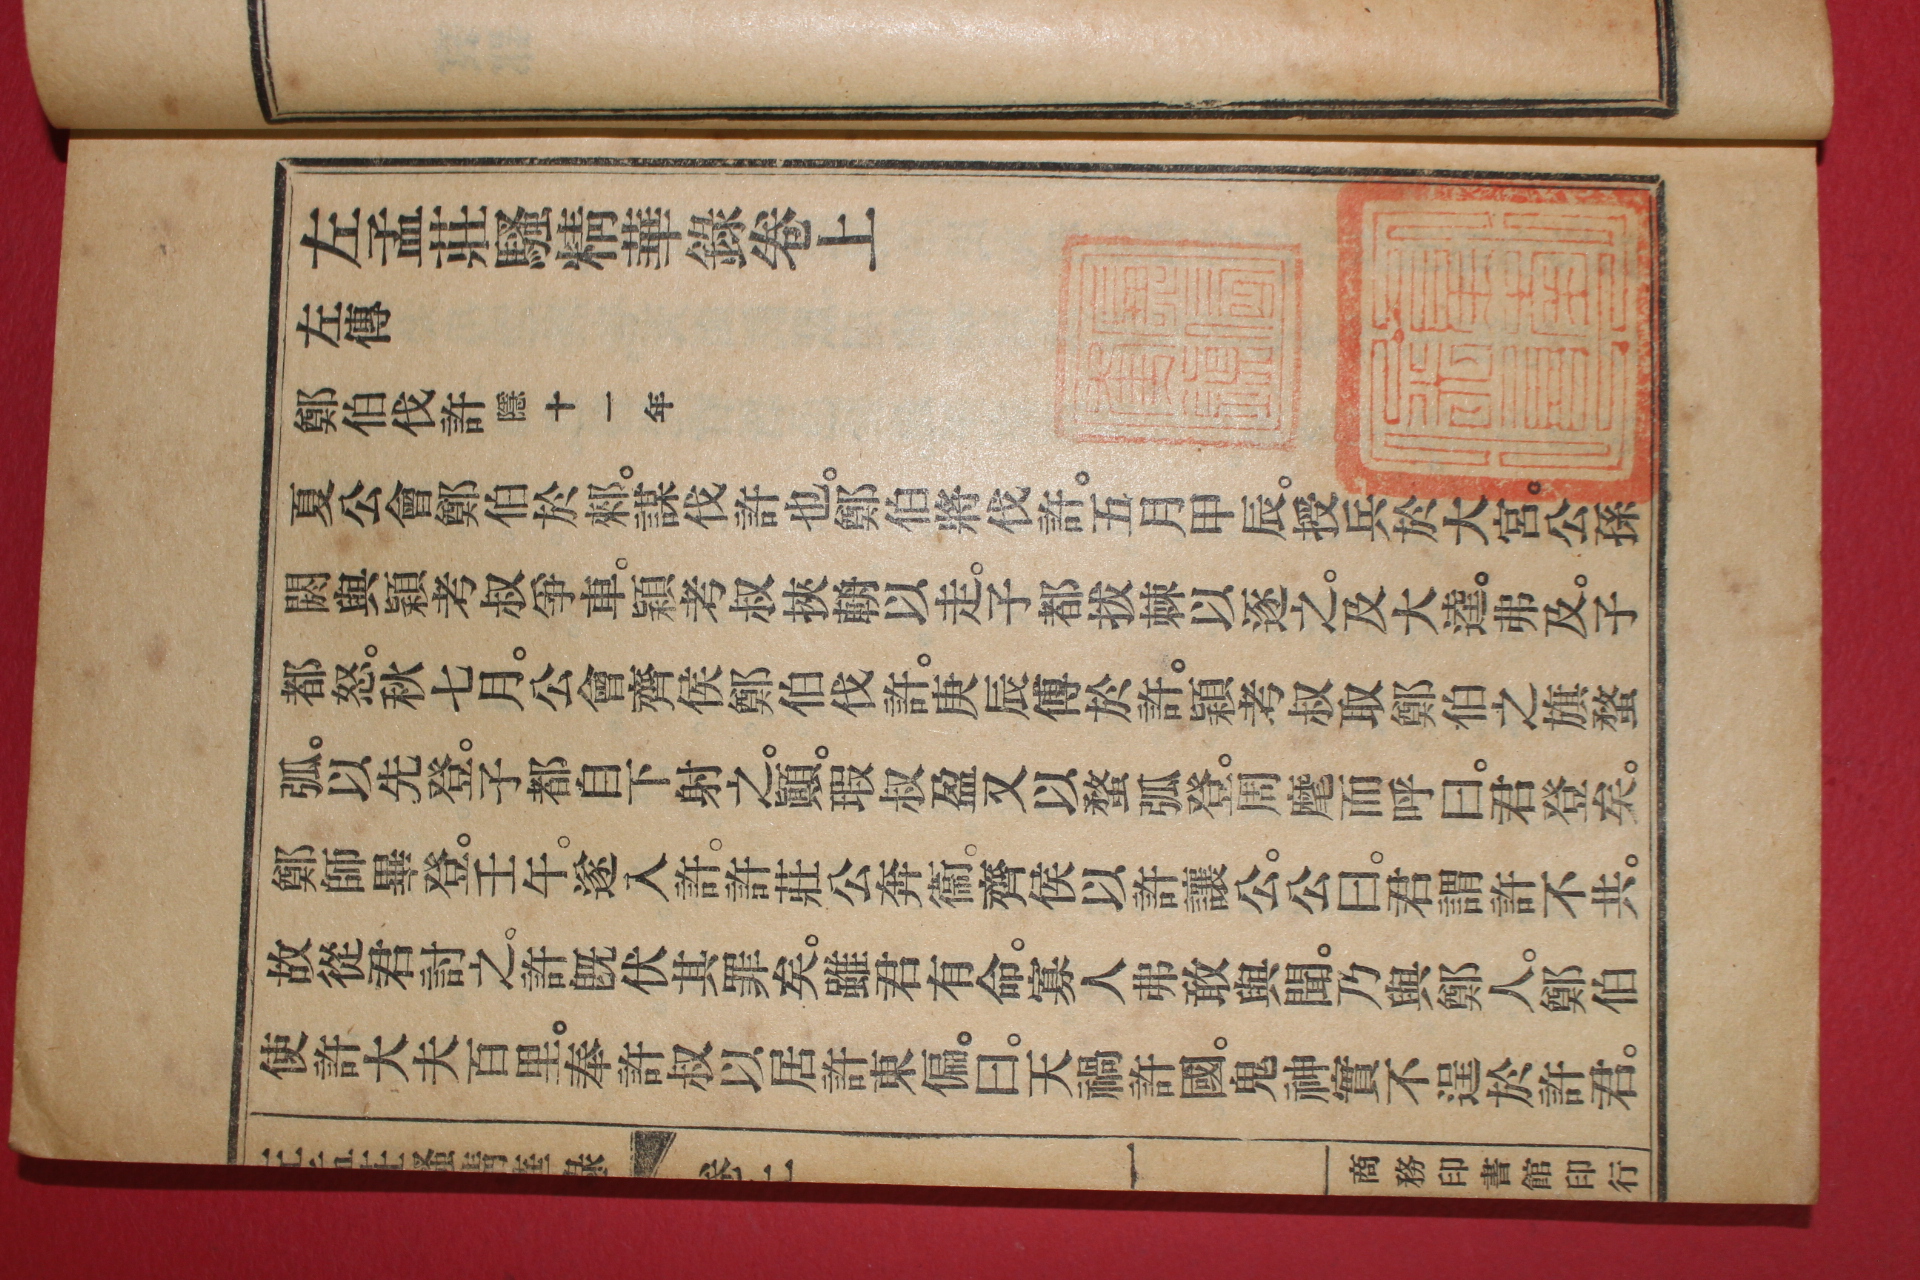 左孟莊騷精華錄卷上
左傳
鄭伯伐許 隱十一年
夏公會鄭伯於郲。謀伐許也。鄭伯將伐許。五月甲辰。授兵於大宮。公孫
閼與穎考叔爭車。穎考叔挾輈以走。子都拔棘以逐之。及大逵。弗及。子
都怒。秋七月。公會齊侯鄭伯伐許。庚辰傅於許。穎考叔取鄭伯之旗蝥
弧。以先登。子都自下射之。顚。瑕叔盈又以蝥弧登。周麾而呼曰。君登矣。
鄭師畢登。壬午。遂入許。許莊公奔衞。齊侯以許讓公。公曰。君謂許不共。
故從君討之。許旣伏其罪矣。雖君有命。寡人弗敢與聞。乃與鄭人。鄭伯
使許大夫百里。奉許叔以居許東偏。曰。天禍許國。鬼神實不逞於許君。
左孟莊騷精華錄 卷上 一 商務印書館印行